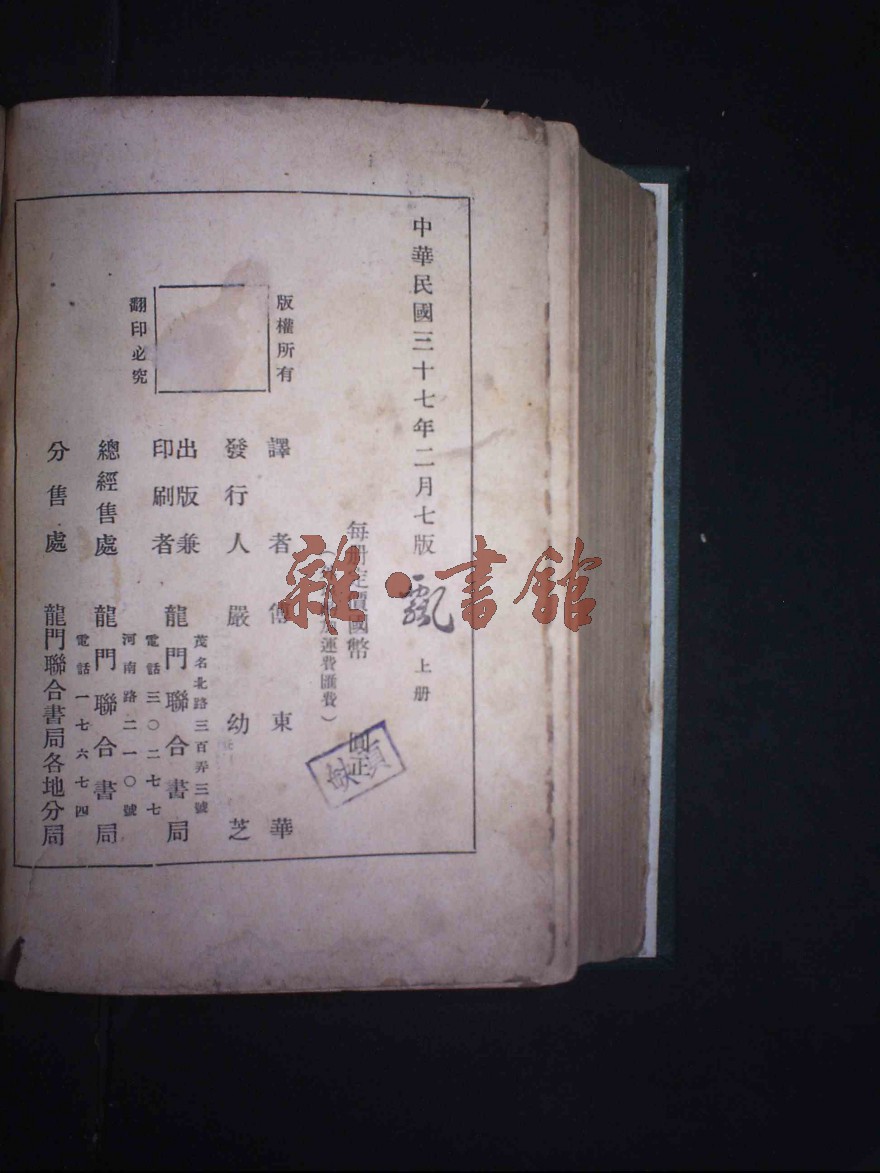 中華民國三十七年二月七版
飄
上册
每册定價國幣
圓正
運費匯費）
版權所有
翻印必究
譯者 傅東華
發行人 嚴幼芝
出版兼
印刷者
龍門聯合書局
茂名北路三百弄三號
電話三〇二七七
總經售處 龍門聯合書局
河南路二一〇號
電話一七六七四
分售處 龍門聯合書局各地分局
雜·書館